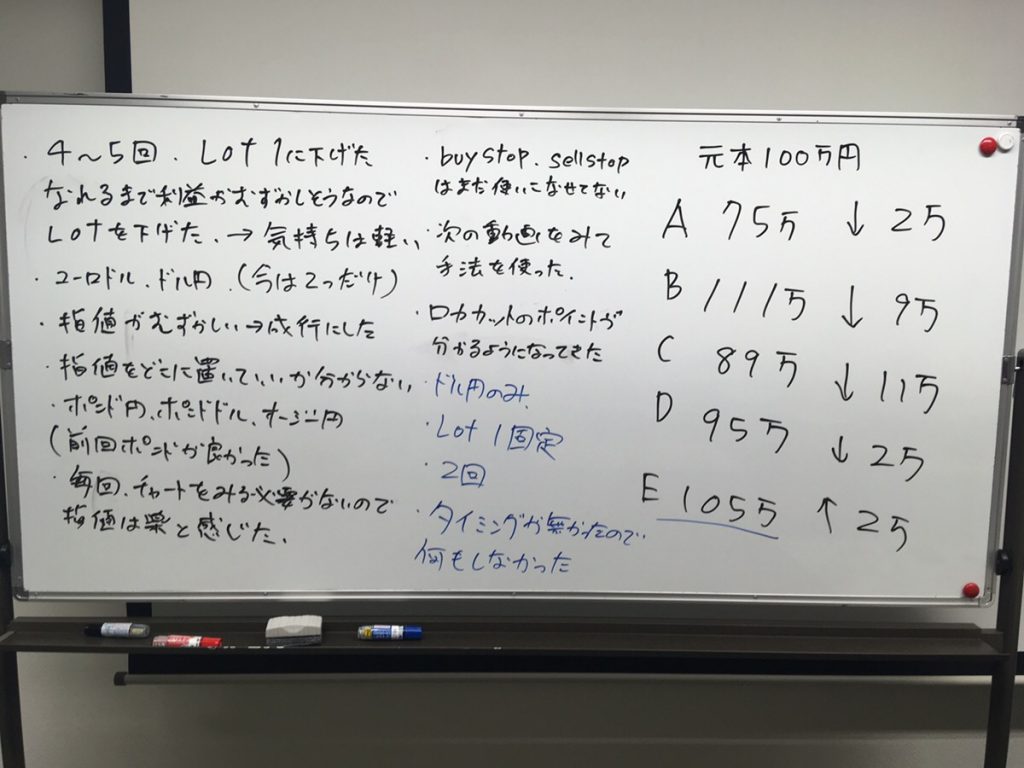 ・4～5回、Lot 1に下げた
なれるまで利益がむずかしそうなので
Lotを下げた、→気持ちは軽い
・ユーロドル、ドル円、(今は2つだけ)
・指値がむずかしい→成行にした
・指値をどこに置いていいか分からない
・ポンド円、ポンドドル、オージー円
(前回ポンドが良かった)
・毎回、チャートをみる必要がないので
指値は楽と感じた、
・buy stop、sell stop
はまだ使いこなせてない
・次の動画をみて
手法を使った、
・ロカカットのポイントが
分かるようになってきた
・ドル円のみ、
・Lot 1固定
・2回
・タイミングが無かったので、
何もしなかった
元本100万円
A 75万 ↓ 2万
B 111万 ↓ 9万
C 89万 ↓ 11万
D 95万 ↓ 2万
E 105万 ↑ 2万